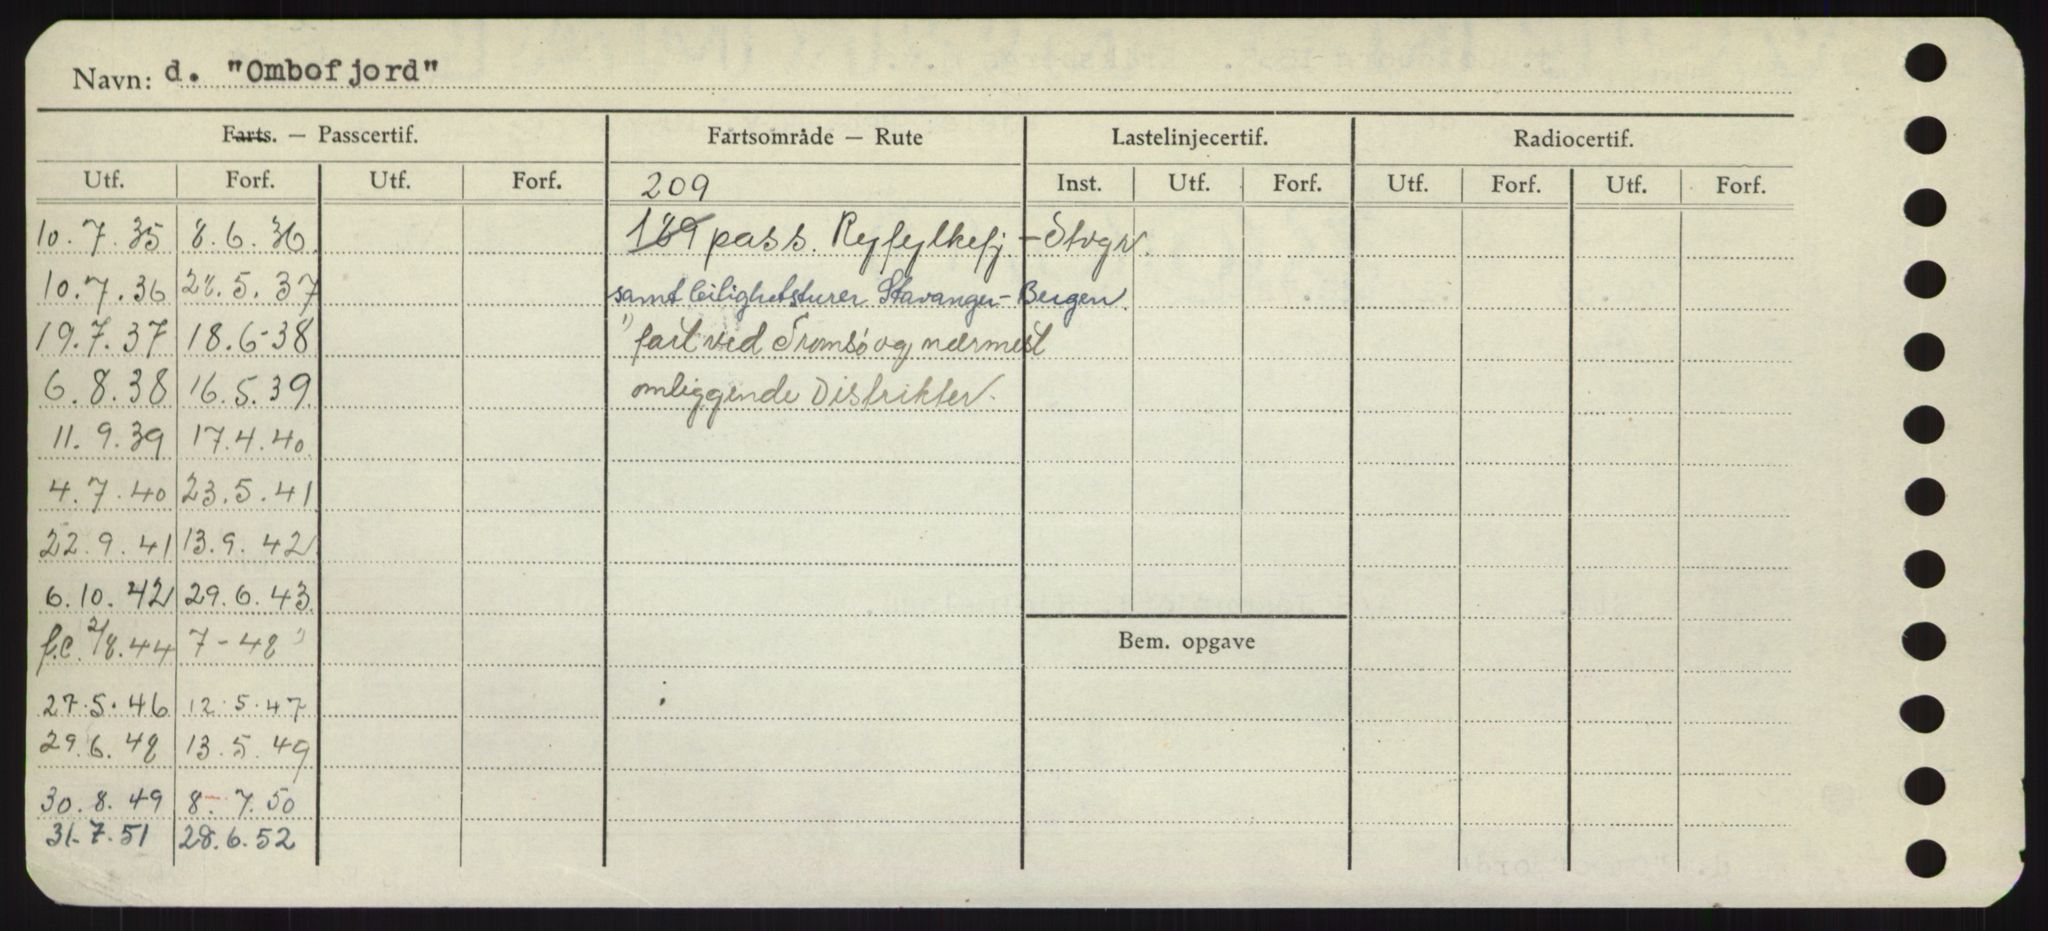 Navn: d. "Ombofjord"
Farts. — Passcertif. Fartsområde — Rute Lastelinjecertif. Radiocertif.
Utf. Forf. Utf. Forf. 209 Inst. Utf. Forf. Utf. Forf. Utf. Forf.
10.7.35 8.6.36 189 pass. Ryfylkefj. - Stvgr.
10.7.36 28.5.37 samt leilighetsturer Stavanger - Bergen.
19.7.37 18.6-38 " fart ved Tromsö og nærmest
6.8.38 16.5.39 omliggende Distrikter.
11.9.39 17.4.40
4.7.40 23.5.41
22.9.41 13.9.42
6.10.42 29.6.43
f.c. 2/8.44 7-48
Bem. opgave
27.5.46 12.5.47
29.6.48 13.5.49
30.8.49 8.7.50
31.7.51 28.6.52